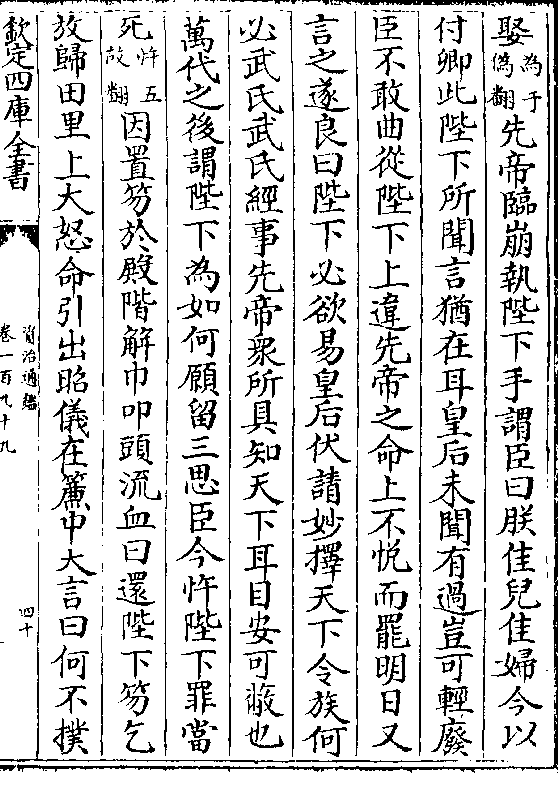 娶為于偽翻先帝臨崩執陛下手謂臣曰朕佳兒佳婦今以
付卿此陛下所聞言猶在耳皇后未聞有過豈可輕廢
臣不敢曲從陛下上違先帝之命上不悅而罷明日又
言之遂良曰陛下必欲易皇后伏請妙擇天下令族何
必武氏武氏經事先帝衆所具知天下耳目安可蔽也
萬代之後謂陛下為如何願留三思臣今忤陛下罪當
死忤五故翻因置笏於殿階解巾叩頭流血曰還陛下笏乞
放歸田里上大怒命引出昭儀在簾中大言曰何不撲
欽定四庫全書
資治通鑑
卷一百九十九
四十